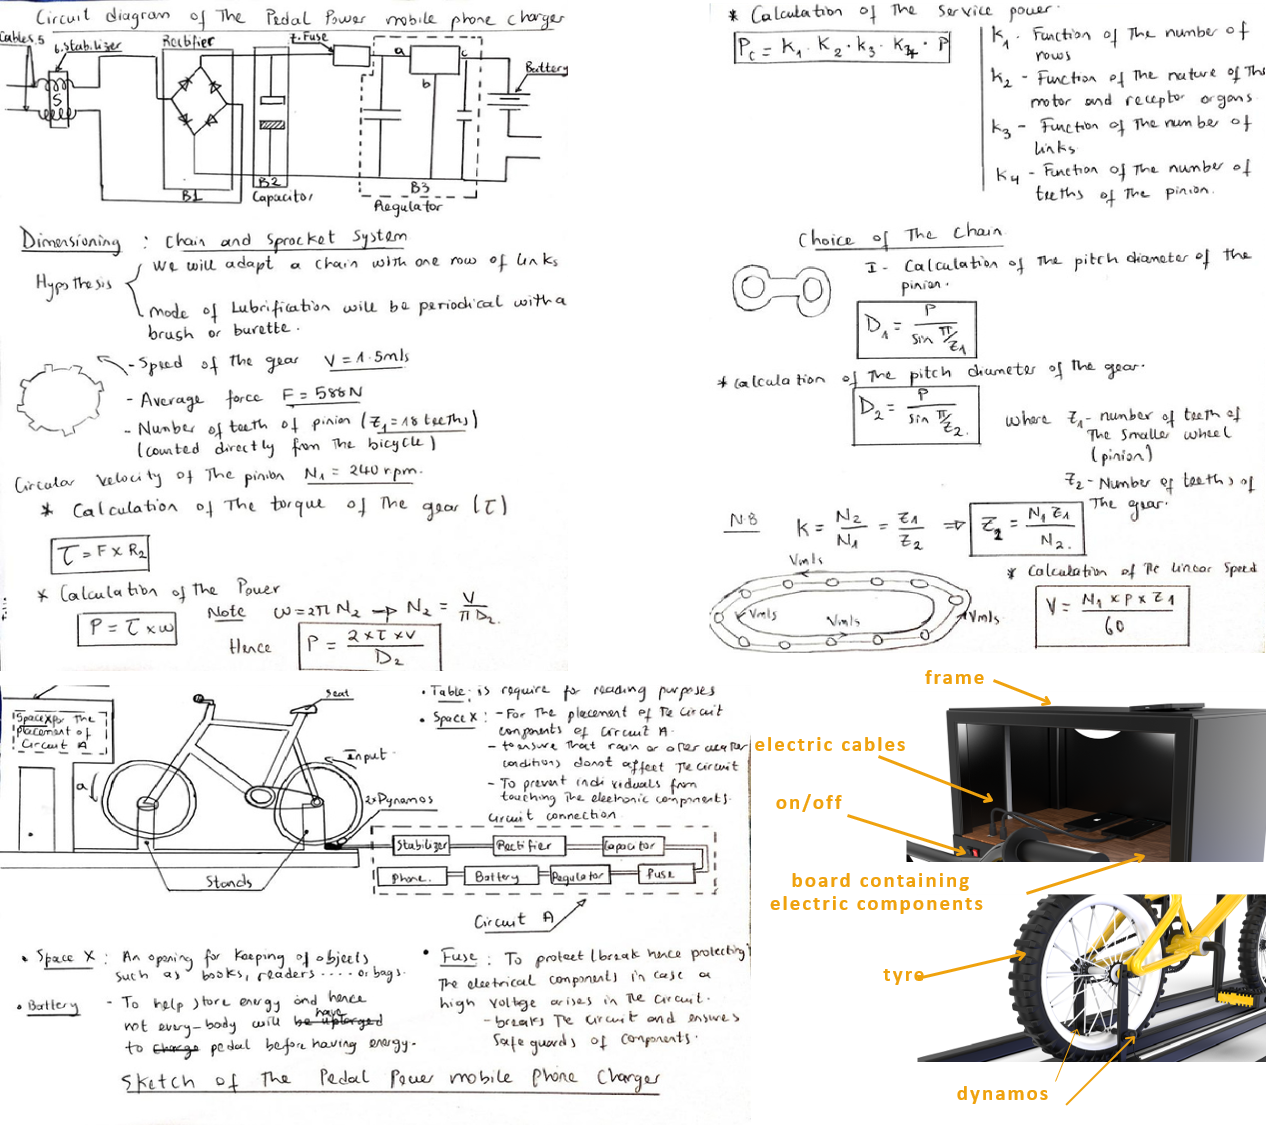 Circuit diagram of The Pedal Power mobile phone charger
Cables,5
6.Stabilizer
Rectifier
7.Fuse
Battery
S
a
b
c
B1
B2
B3
Capacitor
Regulator
Dimensioning : Chain and Sprocket System
Hypothesis
We will adapt a chain with one row of links
mode of Lubrification will be periodical with a
brush or burette.
- Speed of the gear V = 1.5m/s
- Average force F = 588N
- Number of teeth of pinion (Z₁=18 teeths)
(counted directly from The bicycle)
Circular velocity of The pinion N₁ = 240 r.pm.
* Calculation of The torque of The gear (τ)
τ = F × R₂
* Calculation of The Power
P = τ × ω
Note ω=2πN₂ → N₂ = V/πD₂
Hence P = 2×τ×v/D₂
* Calculation of The Service power.
P_c = K₁ . K₂ . K₃ . K₄ . P
K₁ - Function of The number of
rows
K₂ - Function of The nature of The
motor and receptor organs
K₃ - Function of The number of
links
K₄ - Function of The number of
teeths of The pinion.
Choice of The Chain
I - Calculation of The pitch diameter of the
pinion.
D₁ = P/sin π/Z₁
* Calculation of The pitch diameter of the gear.
D₂ = P/sin π/Z₂.
where Z₁ - number of teeth of
The Smaller wheel
(pinion)
Z₂ - Number of teeths of
The gear.
N.B K = N₂/N₁ = Z₁/Z₂ ⇒ Z₂ = N₁Z₁/N₂.
* Calculation of The Linear Speed
V = N₁ × P × Z₁/60
Vm/s
Vm/s
Vm/s
Vm/s
Space X for The
placement of
Circuit A
a
Seat
Input
2×Dynamos
Stands
• Table: is require for reading purposes
• Space X: - For The placement of The circuit
components of circuit A.
- to ensure that rain or other weather
conditions donot affect The circuit
- To prevent individuals from
touching The electronic components.
circuit connection
Stabilizer
Rectifier
Capacitor
Phone.
Battery
Regulator
Fuse
Circuit A
• Space X : An opening for Keeping of objects
such as books, readers ..... or bags.
• Battery - To help store energy and hence
not every-body will have
to pedal before having energy.
• Fuse : To protect (break hence protecting)
The electrical components in case a
high Voltage arises in The circuit.
- breaks The circuit and ensures
Safe guards of components.
Sketch of The Pedal Power mobile phone Charger
frame
electric cables
on/off
board containing
electric components
tyre
dynamos